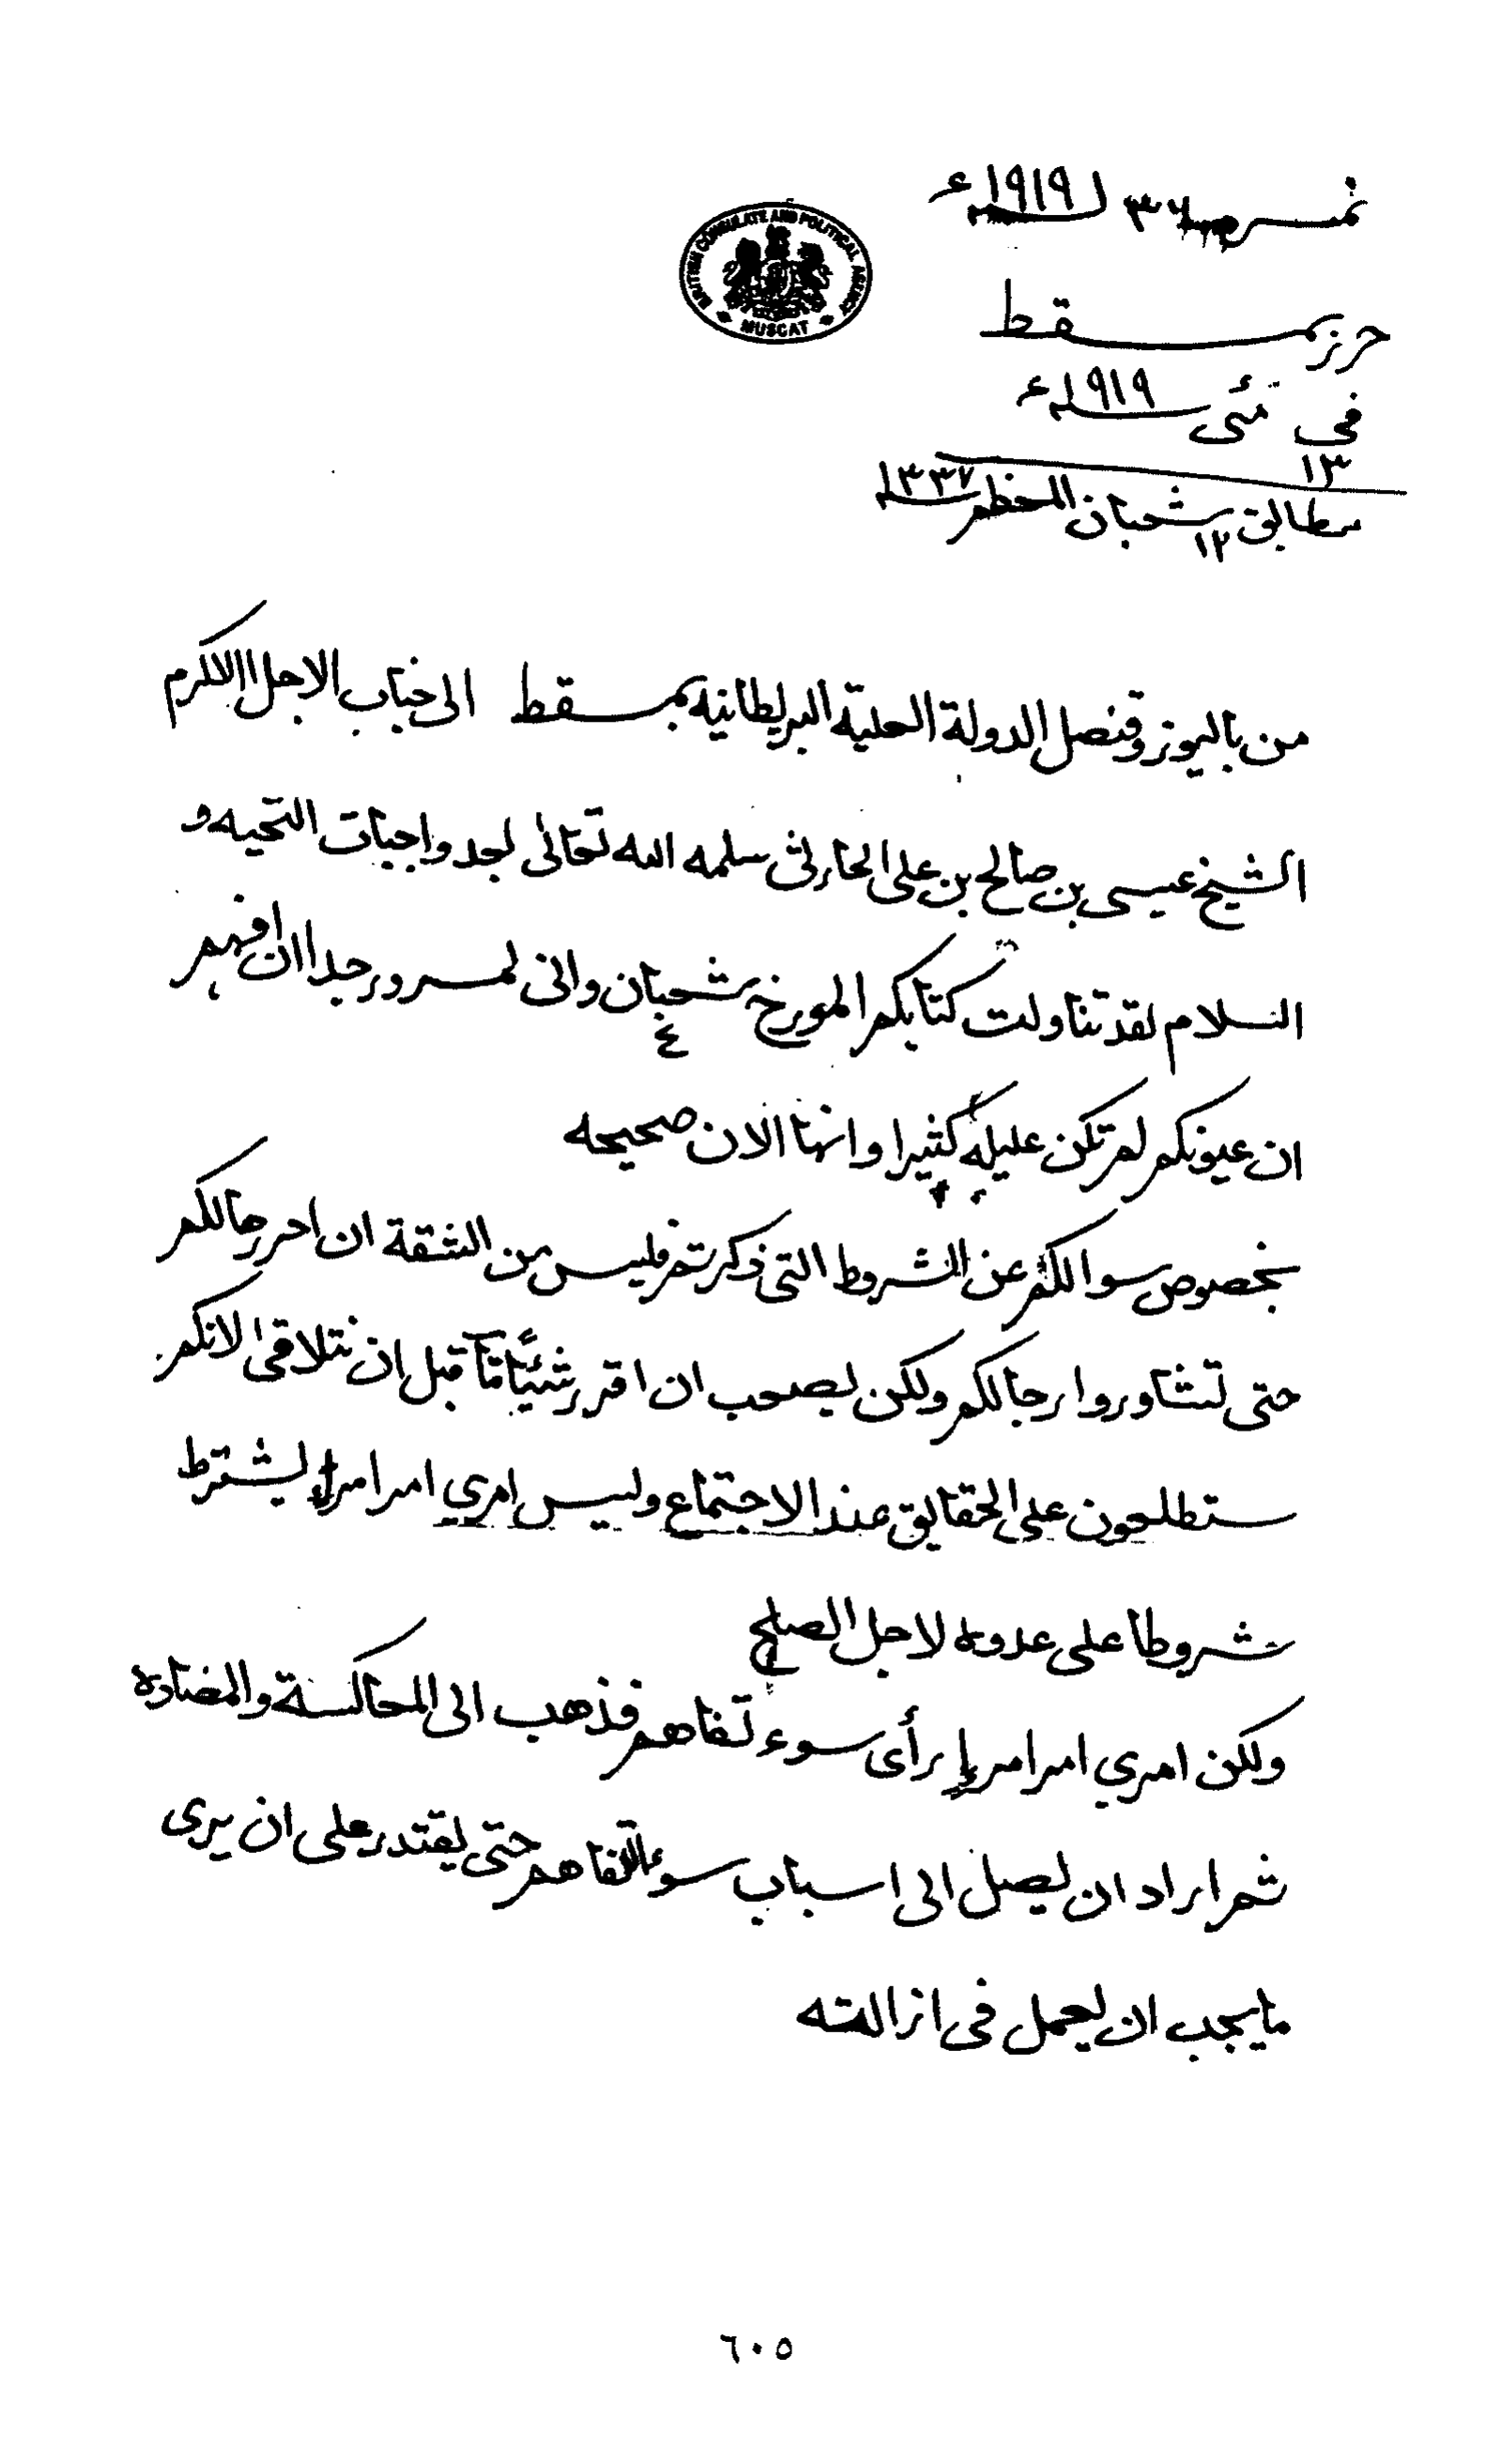 نمبر ٣٦ لسنه ١٩١٩ء
BRITISH CONSULATE AND POLITICAL AGENCY
MUSCAT
حرر بمسقط
في ١٣ مئى سنه ١٩١٩ء
مطابق ١٢ شعبان المعظم سنه ١٣٣٧
من باليوز وقنصل الدولة العلية البريطانيه بمسقط الى جناب الاجل الاكرم
الشيخ عيسى بن صالح بن على الحارثى سلمه الله تعالى بعد واجبات التحيه و
السلام لقد تناولت كتابكم المورخ ٤ شعبان وانى لمسرور جدا ان افهم
ان عيونكم لم تكن عليلة كثيرا وانها الان صحيحه
بخصوص سوالكم عن الشروط التى ذكرتم فليس من الشقة ان احرر مالكم
حتى تشاوروا رجالكم ولكن يصعب ان اقرر شيئا ما قبل ان نتلاقى لانكم
ستطلعون على الحقايق عند الاجتماع وليس امري امر امرإ يشترط
شروطا على عدوه لاجل الصلح
ولكن امري امر امرإ رأى سوء تفاهم فذهب الى المعاكسة والمضاده
ثم اراد ان يصل الى اسباب سوء التفاهم حتى يقتدر على ان يرى
ما يجب ان يعمل فى ازالته
٦٠٥